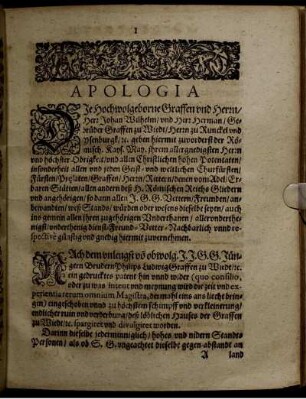 1
APOLOGIA
DIe Hochwolgeborne Graffen vnd Herrn/
Herr Johan Wilhelm/ vnd Herr Herman/ Ge-
brüder Graffen zu Wiedt/ Herrn zu Runckel vnd
Ysenburgk/ ꝛc. geben hiermit zuvorderst der Rö-
misch. Kays. May. ihrem allergnedigsten Herrn
vnd höchster Obrigkeit/ vnd allen Christlichen hohen Potentaten/
insonderheit allen vnd jeden Geist- vnd weltlichen Churfürsten/
Fürsten/ Prelaten/ Graffen/ Herrn/ Rittern/ denen vom Adel/ Er-
baren Stätten/ allen andern deß H. Römischen Reichs Gliedern
vnd angehörigen/ so dann allen J. G. G. Vettern/ Freunden/ an-
verwandten/ weß Stands/ würden oder wesens dieselbe seyen/ auch
ins gemein allen ihren zugehörigen Vnderthanen/ allervnderthe-
nigst/ vnderthenig dienst- Freund- Vetter- Nachbarlich vnnd re-
spectivè günstig vnd gnedig hiermit zuvernehmen.
NAch dem vnlengst vō obwolg. J. J. G. G. Jün-
gern Brudern Philips Ludwig Graffen zu Wiedt/ ꝛc.
ein gedrucktes patent hin vnnd wider (quo consilio,
oder zu was intent vnd meynung wird die zeit vnd ex-
perientia rerum omnium Magistra, der mahl eins ans liecht brin-
gen/) eingeschoben vnnd zu höchstem schimpff vnd verkleinerung/
endlicher ruin vnd verderbung/ deß löblichen Hauses der Graffen
zu Wiedt/ ꝛc. spargirt vnd divulgiert worden.
Darinn dieselbe jedermänniglich/ hohen vnd nidern Stands
Personen/ als ob S. G. vngeachtet dieselbe gegen abstandt an
A land